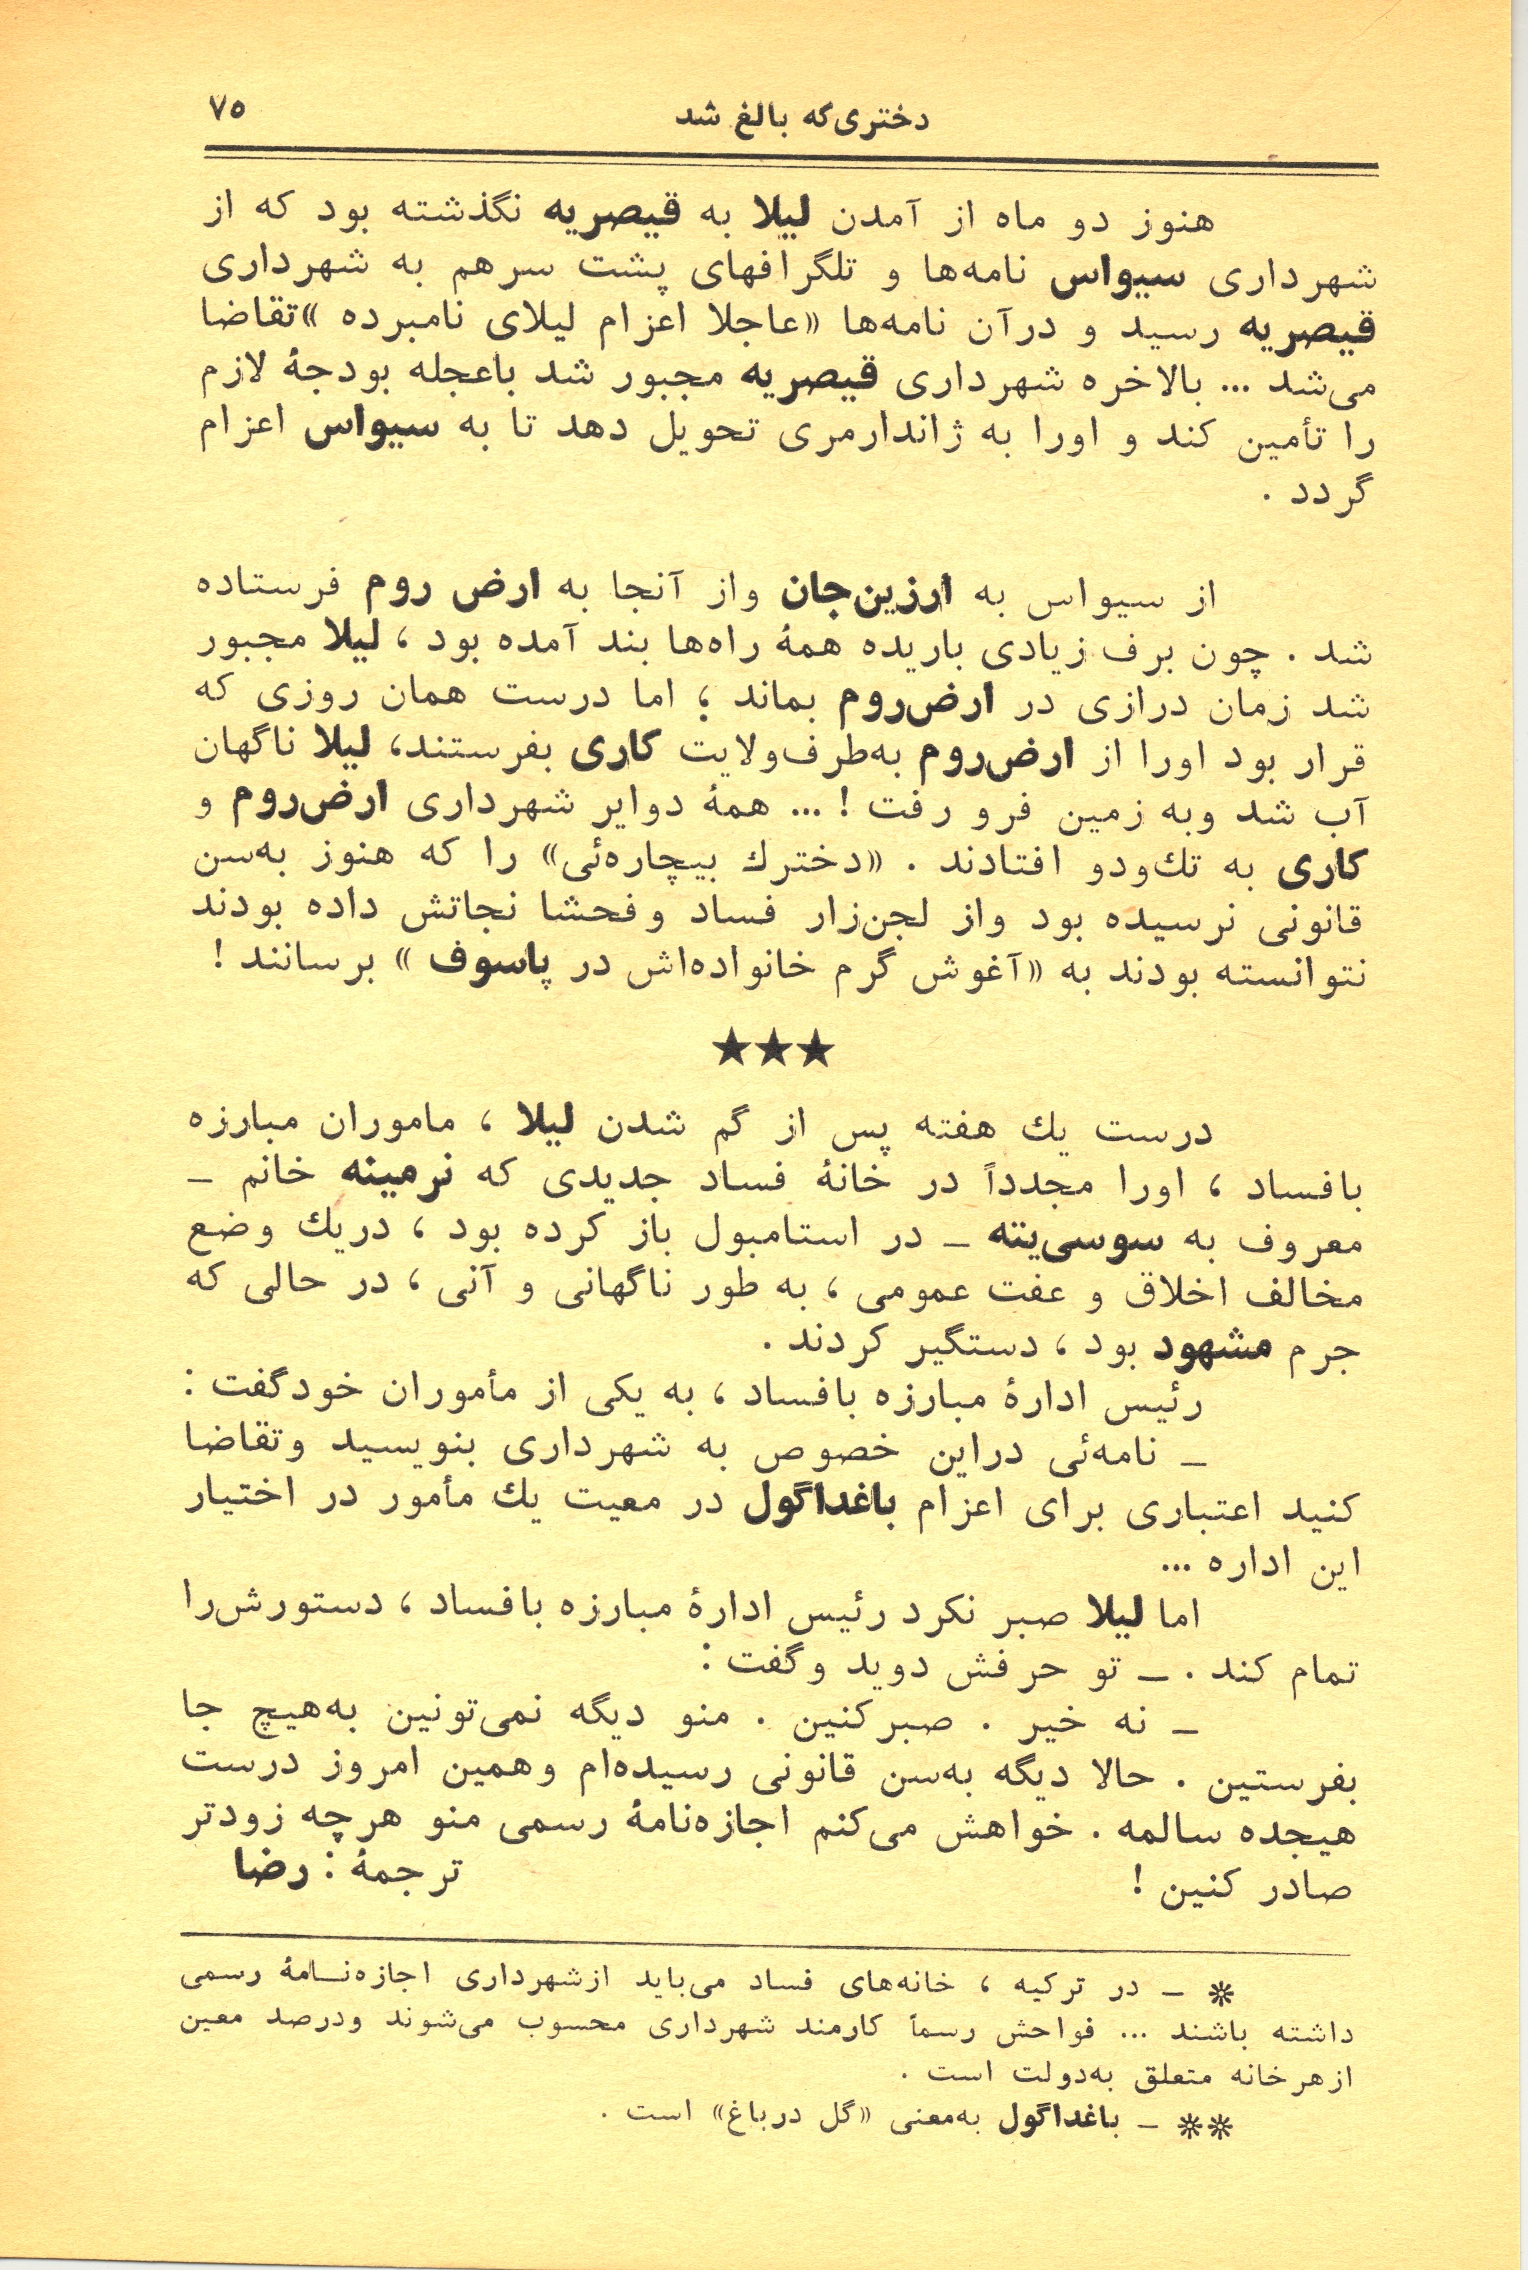 دختری‌که بالغ شد
۷۵
هنوز دو ماه از آمدن لیلا به قیصریه نگذشته بود که از
شهرداری سیواس نامه‌ها و تلگرافهای پشت سرهم به شهرداری
قیصریه رسید و درآن نامه‌ها «عاجلا اعزام لیلای نامبرده »تقاضا
می‌شد ... بالاخره شهرداری قیصریه مجبور شد باعجله بودجهٔ لازم
را تأمین کند و اورا به ژاندارمری تحویل دهد تا به سیواس اعزام
گردد .
از سیواس به ارزین‌جان واز آنجا به ارض روم فرستاده
شد . چون برف زیادی باریده همهٔ راه‌ها بند آمده بود ، لیلا مجبور
شد زمان درازی در ارض‌روم بماند ؛ اما درست همان روزی که
قرار بود اورا از ارض‌روم به‌طرف‌ولایت کاری بفرستند، لیلا ناگهان
آب شد وبه زمین فرو رفت ! ... همهٔ دوایر شهرداری ارض‌روم و
کاری به تك‌ودو افتادند . «دخترك بیچاره‌ئی» را که هنوز به‌سن
قانونی نرسیده بود واز لجن‌زار فساد وفحشا نجاتش داده بودند
نتوانسته بودند به «آغوش گرم خانواده‌اش در پاسوف » برسانند !
★★★
درست یك هفته پس از گم شدن لیلا ، ماموران مبارزه
بافساد ، اورا مجدداً در خانهٔ فساد جدیدی که نرمینه خانم ـ
معروف به سوسی‌یته ـ در استامبول باز کرده بود ، دریك وضع
مخالف اخلاق و عفت عمومی ، به طور ناگهانی و آنی ، در حالی که
جرم مشهود بود ، دستگیر کردند .
رئیس ادارهٔ مبارزه بافساد ، به یکی از مأموران خودگفت :
ـ نامه‌ئی دراین خصوص به شهرداری بنویسید وتقاضا
کنید اعتباری برای اعزام باغداگول در معیت یك مأمور در اختیار
این اداره ...
اما لیلا صبر نکرد رئیس ادارهٔ مبارزه بافساد ، دستورش‌را
تمام کند . ـ تو حرفش دوید وگفت :
ـ نه خیر . صبرکنین . منو دیگه نمی‌تونین به‌هیچ جا
بفرستین . حالا دیگه به‌سن قانونی رسیده‌ام وهمین امروز درست
هیجده سالمه . خواهش می‌کنم اجازه‌نامهٔ رسمی منو هرچه زودتر
صادر کنین !
ترجمهٔ : رضا
* ـ در ترکیه ، خانه‌های فساد می‌باید ازشهرداری اجازه‌نـامهٔ رسمی
داشته باشند ... فواحش رسماً کارمند شهرداری محسوب می‌شوند ودرصد معین
ازهرخانه متعلق به‌دولت است .
** ـ باغداگول به‌معنی «گل درباغ» است .